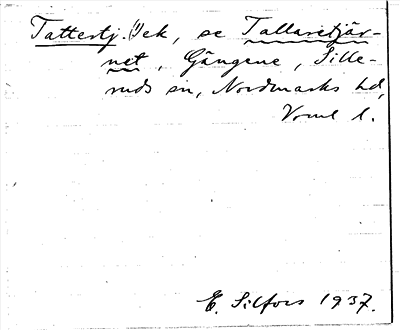 Tattertj. (1) ek, se Tallaretjär-
net, Gängene, Sille-
ruds sn, Nordmarks hd,
Vrml l.
E. Silfors 1937.